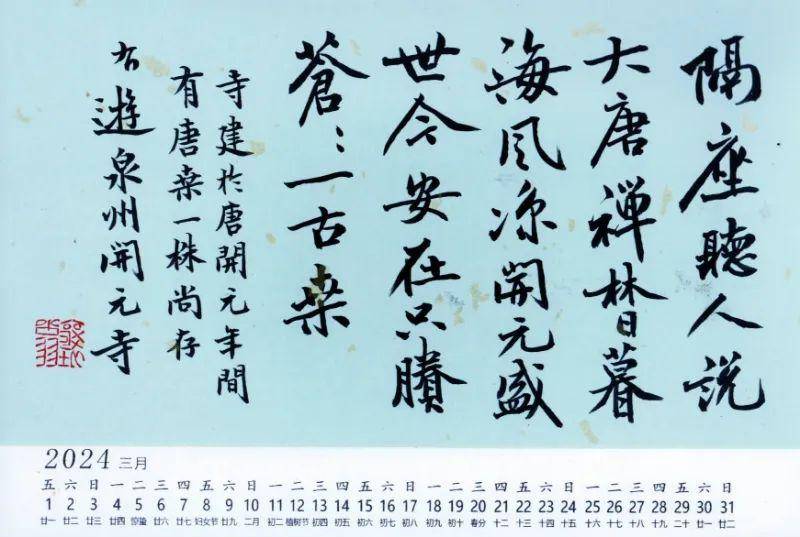 隔座聽人説
大唐禅林日暮
海风凉開元盛
世今安在只賸
蒼〻一古桒
寺建於唐開元年間
有唐桒一株尚存
右遊泉州開元寺
2024 三月
五 六 日 一 二 三 四 五 六 日 一 二 三 四 五 六 日 一 二 三 四 五 六 日 一 二 三 四 五 六 日
1 2 3 4 5 6 7 8 9 10 11 12 13 14 15 16 17 18 19 20 21 22 23 24 25 26 27 28 29 30 31
廿一 廿二 廿三 廿四 惊蛰 廿六 廿七 妇女节 廿九 二月 初二 植树节 初四 初五 初六 初七 初八 初九 初十 春分 十二 十三 十四 十五 十六 十七 十八 十九 二十 廿一 廿二